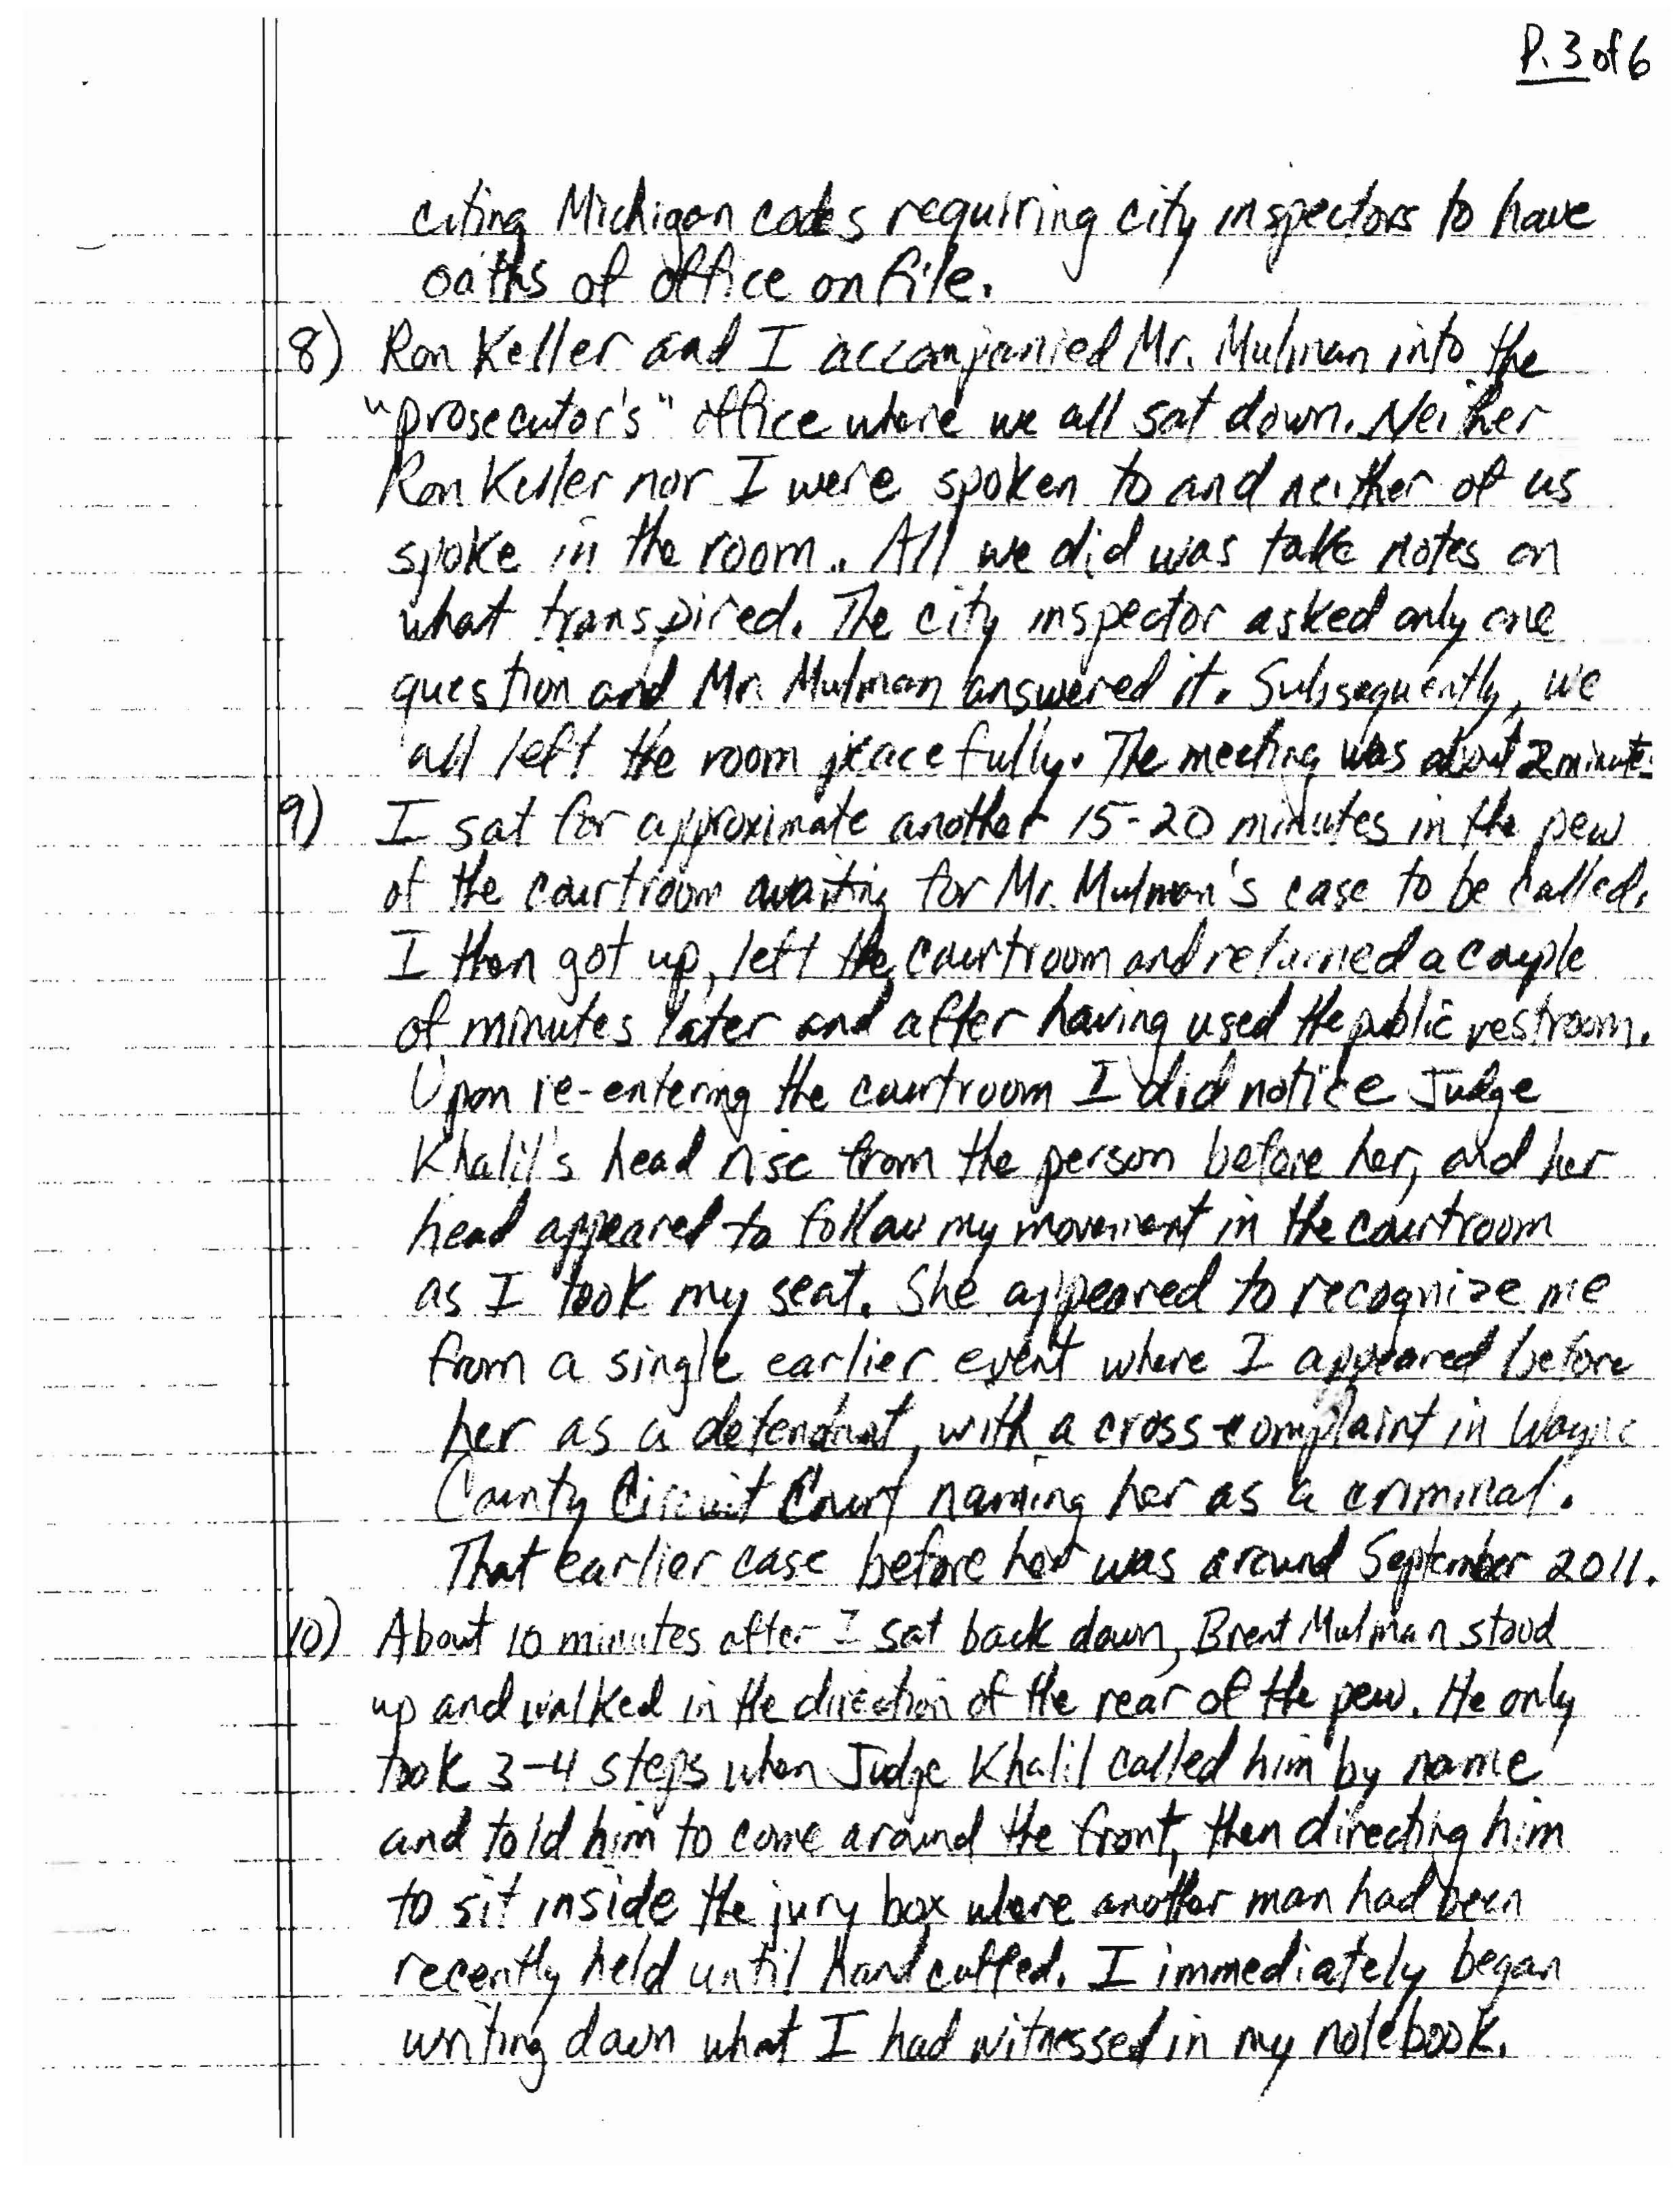 P. 3 of 6
citing Michigan codes requiring city inspectors to have
oaths of office on file.
8) Ron Keller and I accompanied Mr. Mulman into the
"prosecutor's" office where we all sat down. Neither
Ron Keller nor I were spoken to and neither of us
spoke in the room. All we did was take notes on
what transpired. The city inspector asked only one
question and Mr. Mulman answered it. Subsequently, we
all left the room peacefully. The meeting was about 2 minutes
9) I sat for approximate another 15-20 minutes in the pew
of the courtroom awaiting for Mr. Mulman's case to be called.
I then got up, left the courtroom and returned a couple
of minutes later and after having used the public restroom.
Upon re-entering the courtroom I did notice Judge
Khalil's head rise from the person before her, and her
head appeared to follow my movement in the courtroom
as I took my seat. She appeared to recognize me
from a single earlier event where I appeared before
her as a defendant, with a cross-complaint in Wayne
County Circuit Court naming her as a criminal.
That earlier case before her was around September 2011.
10) About 10 minutes after I sat back down, Brent Mulman stood
up and walked in the direction of the rear of the pew. He only
took 3-4 steps when Judge Khalil called him by name
and told him to come around the front, then directing him
to sit inside the jury box where another man had been
recently held until handcuffed. I immediately began
writing down what I had witnessed in my notebook.